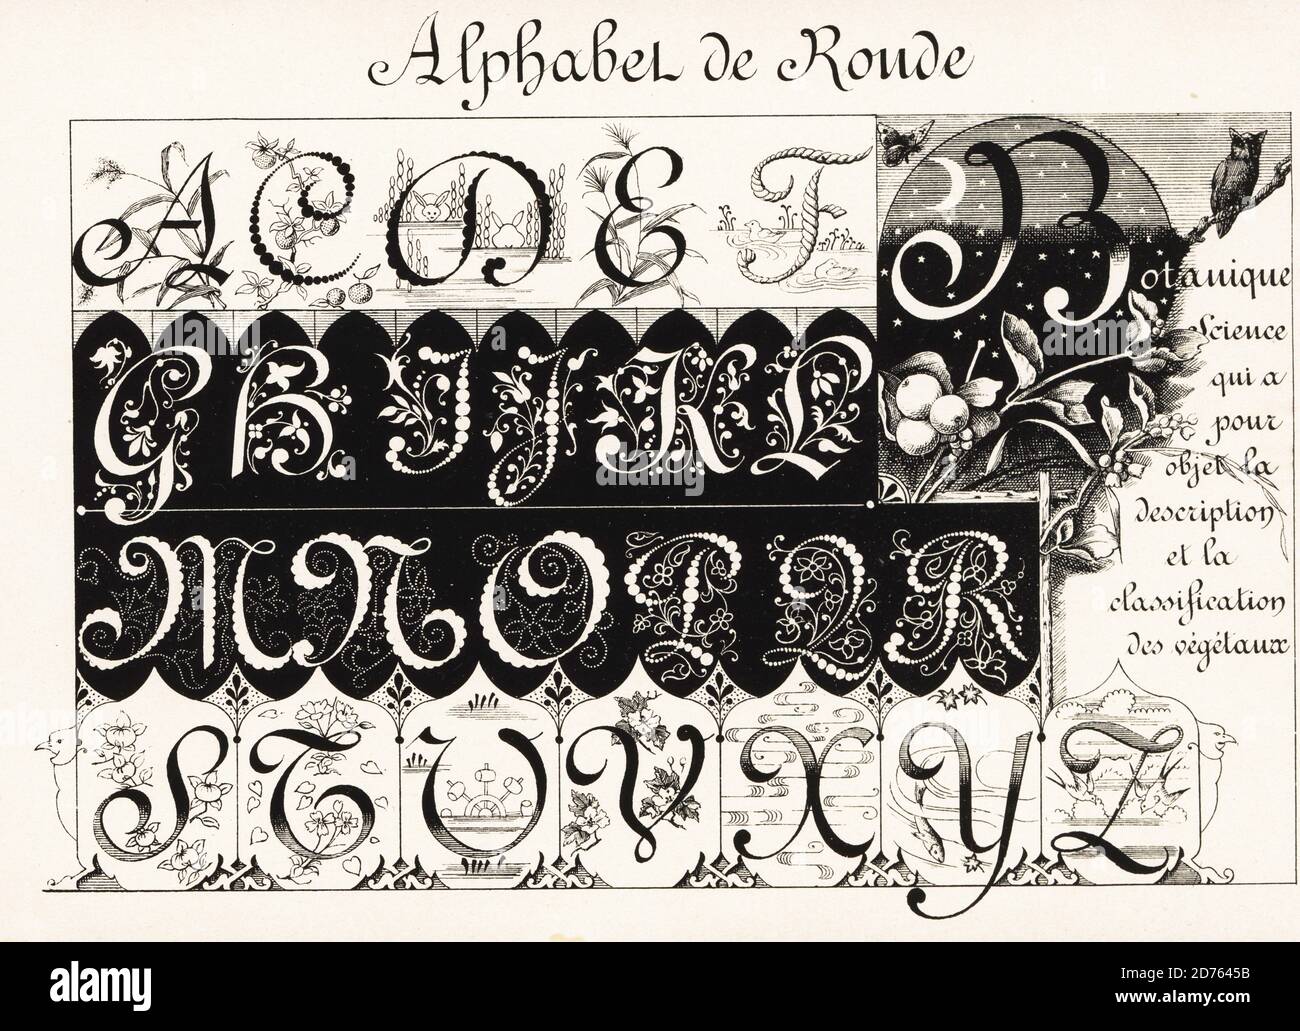 Alphabet de Ronde
A C D E F
B
otanique
Science
qui a
pour
objet la
description
et la
classification
des végétaux
G H I J K L
M N O P Q R
S T U V X Y Z
alamy
Image ID: 2D7645B
www.alamy.com